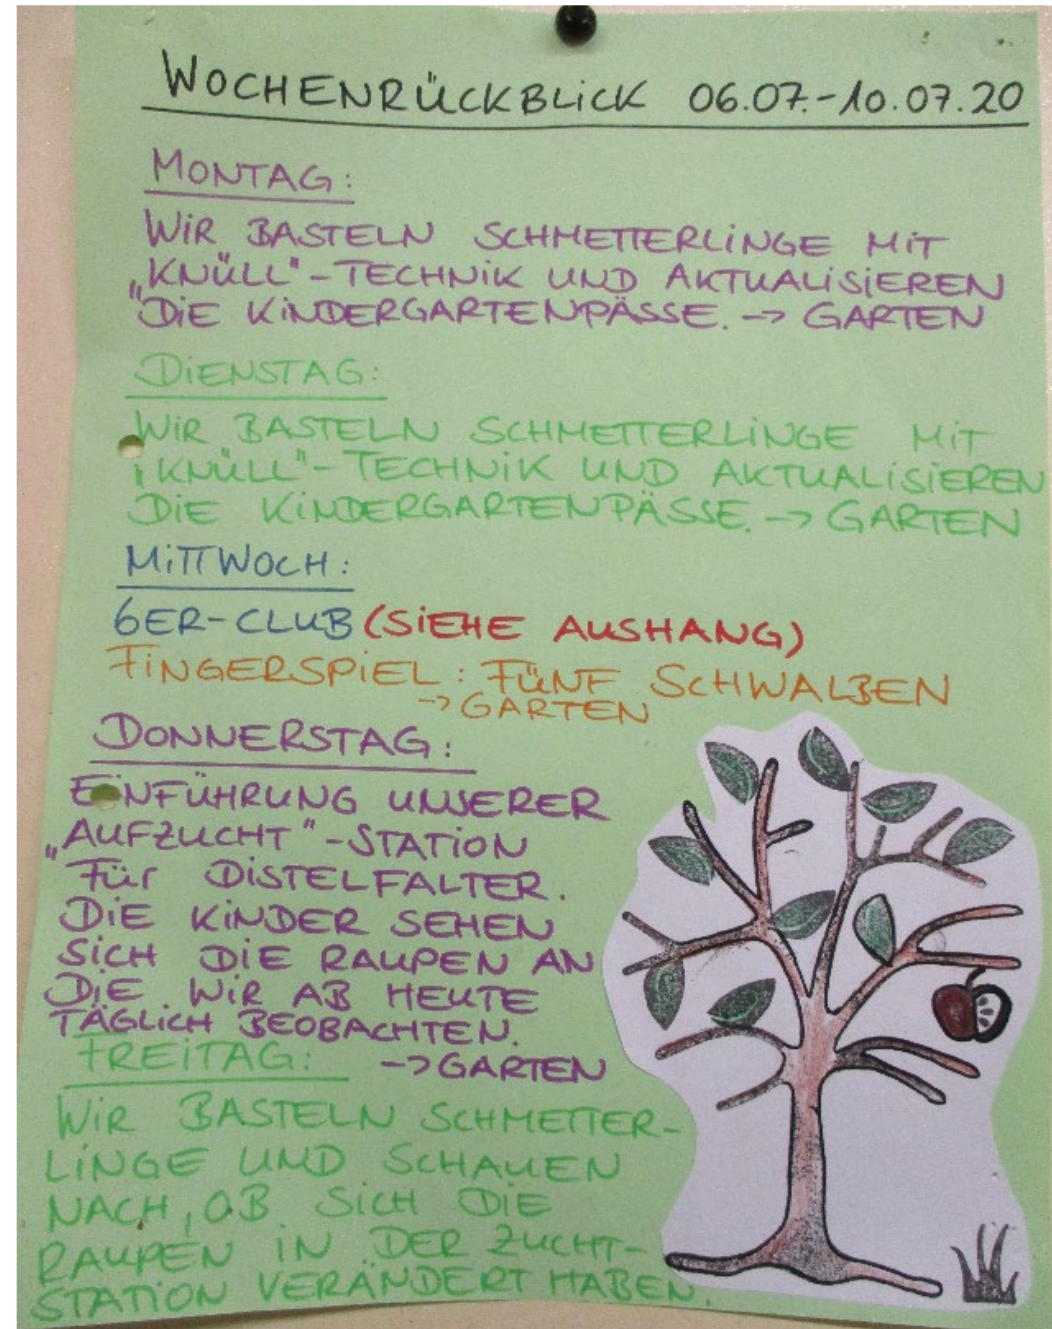 WOCHENRÜCKBLICK 06.07.-10.07.20
MONTAG:
WIR BASTELN SCHMETTERLINGE MIT
„KNÜLL"-TECHNIK UND AKTUALISIEREN
DIE KINDERGARTENPÄSSE. -> GARTEN
DIENSTAG:
WIR BASTELN SCHMETTERLINGE MIT
„KNÜLL"-TECHNIK UND AKTUALISIEREN
DIE KINDERGARTENPÄSSE. -> GARTEN
MITTWOCH:
6ER-CLUB (SIEHE AUSHANG)
FINGERSPIEL: FÜNF SCHWALBEN
-> GARTEN
DONNERSTAG:
EINFÜHRUNG UNSERER
„AUFZUCHT"-STATION
FÜR DISTELFALTER.
DIE KINDER SEHEN
SICH DIE RAUPEN AN
DIE WIR AB HEUTE
TÄGLICH BEOBACHTEN.
-> GARTEN
FREITAG:
WIR BASTELN SCHMETTER-
LINGE UND SCHAUEN
NACH, OB SICH DIE
RAUPEN IN DER ZUCHT-
STATION VERÄNDERT HABEN.